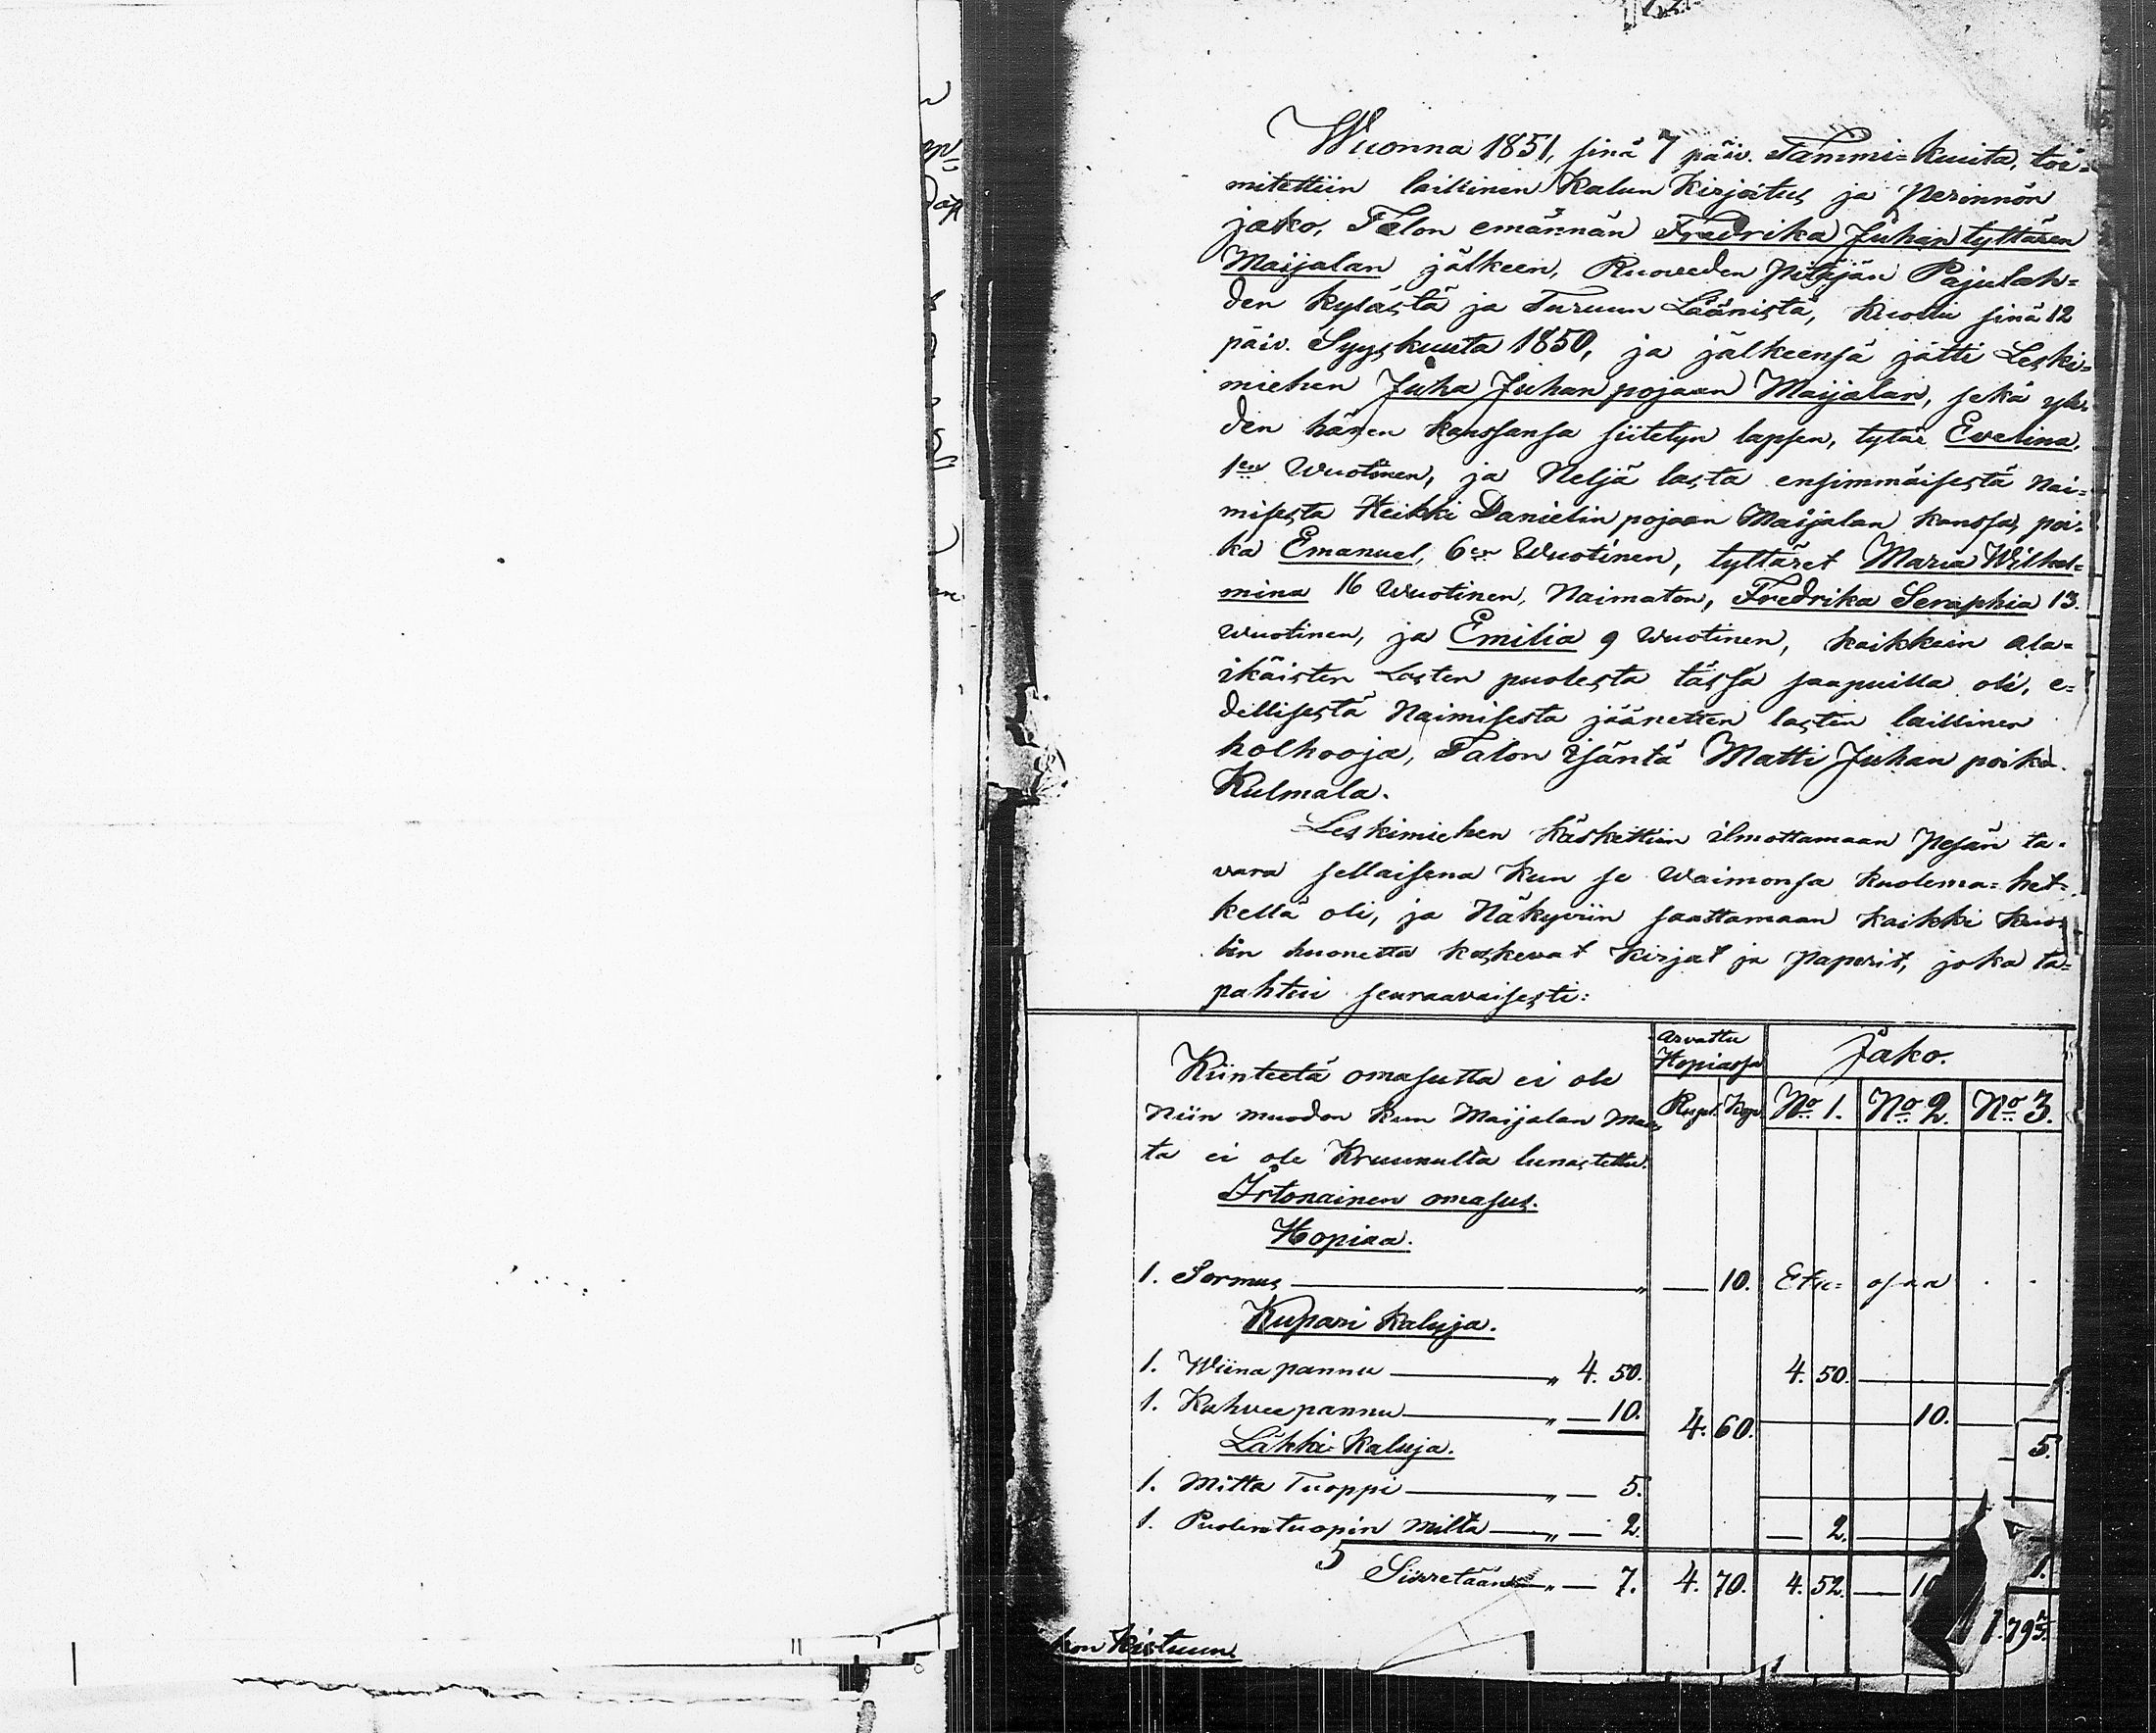 Wuonna 1851, sinä 7 päiv. Tammi=kuuta, toi=
mitettiin laillinen Kalun Kirjoitus ja Perinnön
jako, Talon emännän Fredrika Juhan tyttären
Maijalan jälkeen, Ruoveden Pitäjän Pajulah=
den kylästä ja Turuun Läänistä, kuoli sinä 12
päiv. Syyskuuta 1850, ja jälkeensä jätti Leski=
miehen Juha Juhan pojaan Maijalan, sekä yh=
den hänen kanssansa siitetyn lapsen, tytär Evelina,
1en Wuotinen, ja Neljä lasta ensimmäisestä Nai=
misesta Heikki Danielin pojaan Maijalan kanssa, poi=
ka Emanuel, 6en Wuotinen, tyttäret Maria Wilhel=
mina 16 Wuotinen, Naimaton, Fredrika Seraphia 13.
Wuotinen, ja Emilia 9 Wuotinen, kaikkein ala=
ikäisten Lasten puolesta tässä saapuilla oli, e=
dellisestä Naimisesta jäänetten lasten laillinen
holhooja, Talon Isäntä Matti Juhan poika
Kulmala.
Leskimiehen käskettiin ilmottamaan Pesän ta=
vara sellaisena kun se Waimonsa kuolema=het=
kellä oli, ja Näkyviin saattamaan kaikki kuo=
lin huonetta koskevat kirjat ja paperit, joka ta=
pahtui seuraavaisesti:
Arvattu Hopiassa Jako.
Rupl. Kop. No 1. No 2. No 3.
Kiinteetä omasutta ei ole
Niin muodon kun Maijalan Maa
ta ei ole Kruunulta lunastettu.
Irtonainen omasus.
Hopiaa.
1. Sormus „ — 10. Etu= osaa . .
Kupari kaluja.
1. Wiina pannu „ 4. 50. 4. 50.
1. Kahvee pannu „ — 10. 4. 60. 10.
Läkki=kaluja. 5.
1. Mitta Tuoppi „ — 5.
1. Puolentuopin Mitta „ — 2. — 2.
5
Siirretään „ — 7. 4. 70. 4. 52. — 10 1.
1. 79
kon Kistuun